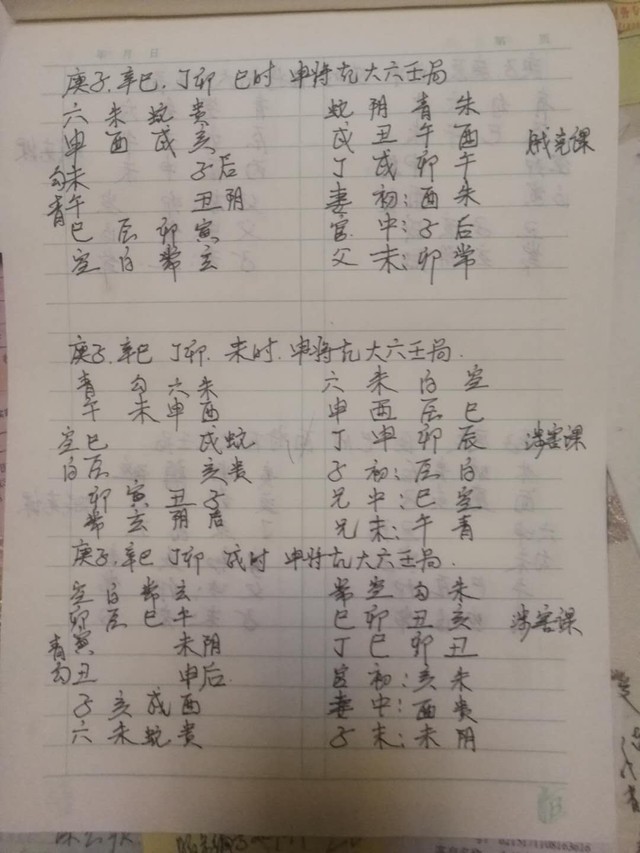 年 月 日
第 页
庚子、辛巳、丁卯 巳时 申将占大六壬局
六 朱 蛇 贵 蛇 阴 青 朱
申 酉 戌 亥 戌 丑 午 酉 贼克课
勾未 子后 丁 戌 卯 午
青午 丑阴 妻 初:酉 朱
巳 辰 卯 寅 官 中:子 后
空 白 常 玄 父 末:卯 常
庚子、辛巳 丁卯、未时、申将占大六壬局.
青 勾 六 朱 六 朱 白 空
午 未 申 酉 申 酉 辰 巳
空巳 戌蛇 丁 申 卯 辰 涉害课
白辰 亥贵 子 初:辰 白
卯 寅 丑 子 兄 中:巳 空
常 玄 阴 后 兄 末:午 青
庚子、辛巳 丁卯 戌时 申将占大六壬局.
空 白 常 玄 常 空 勾 朱
卯 辰 巳 午 巳 卯 丑 亥 涉害课
青寅 未阴 丁 巳 卯 丑
勾丑 申后 官 初:亥 朱
子 亥 戌 酉 妻 中:酉 贵
六 朱 蛇 贵 子 末:未 阴